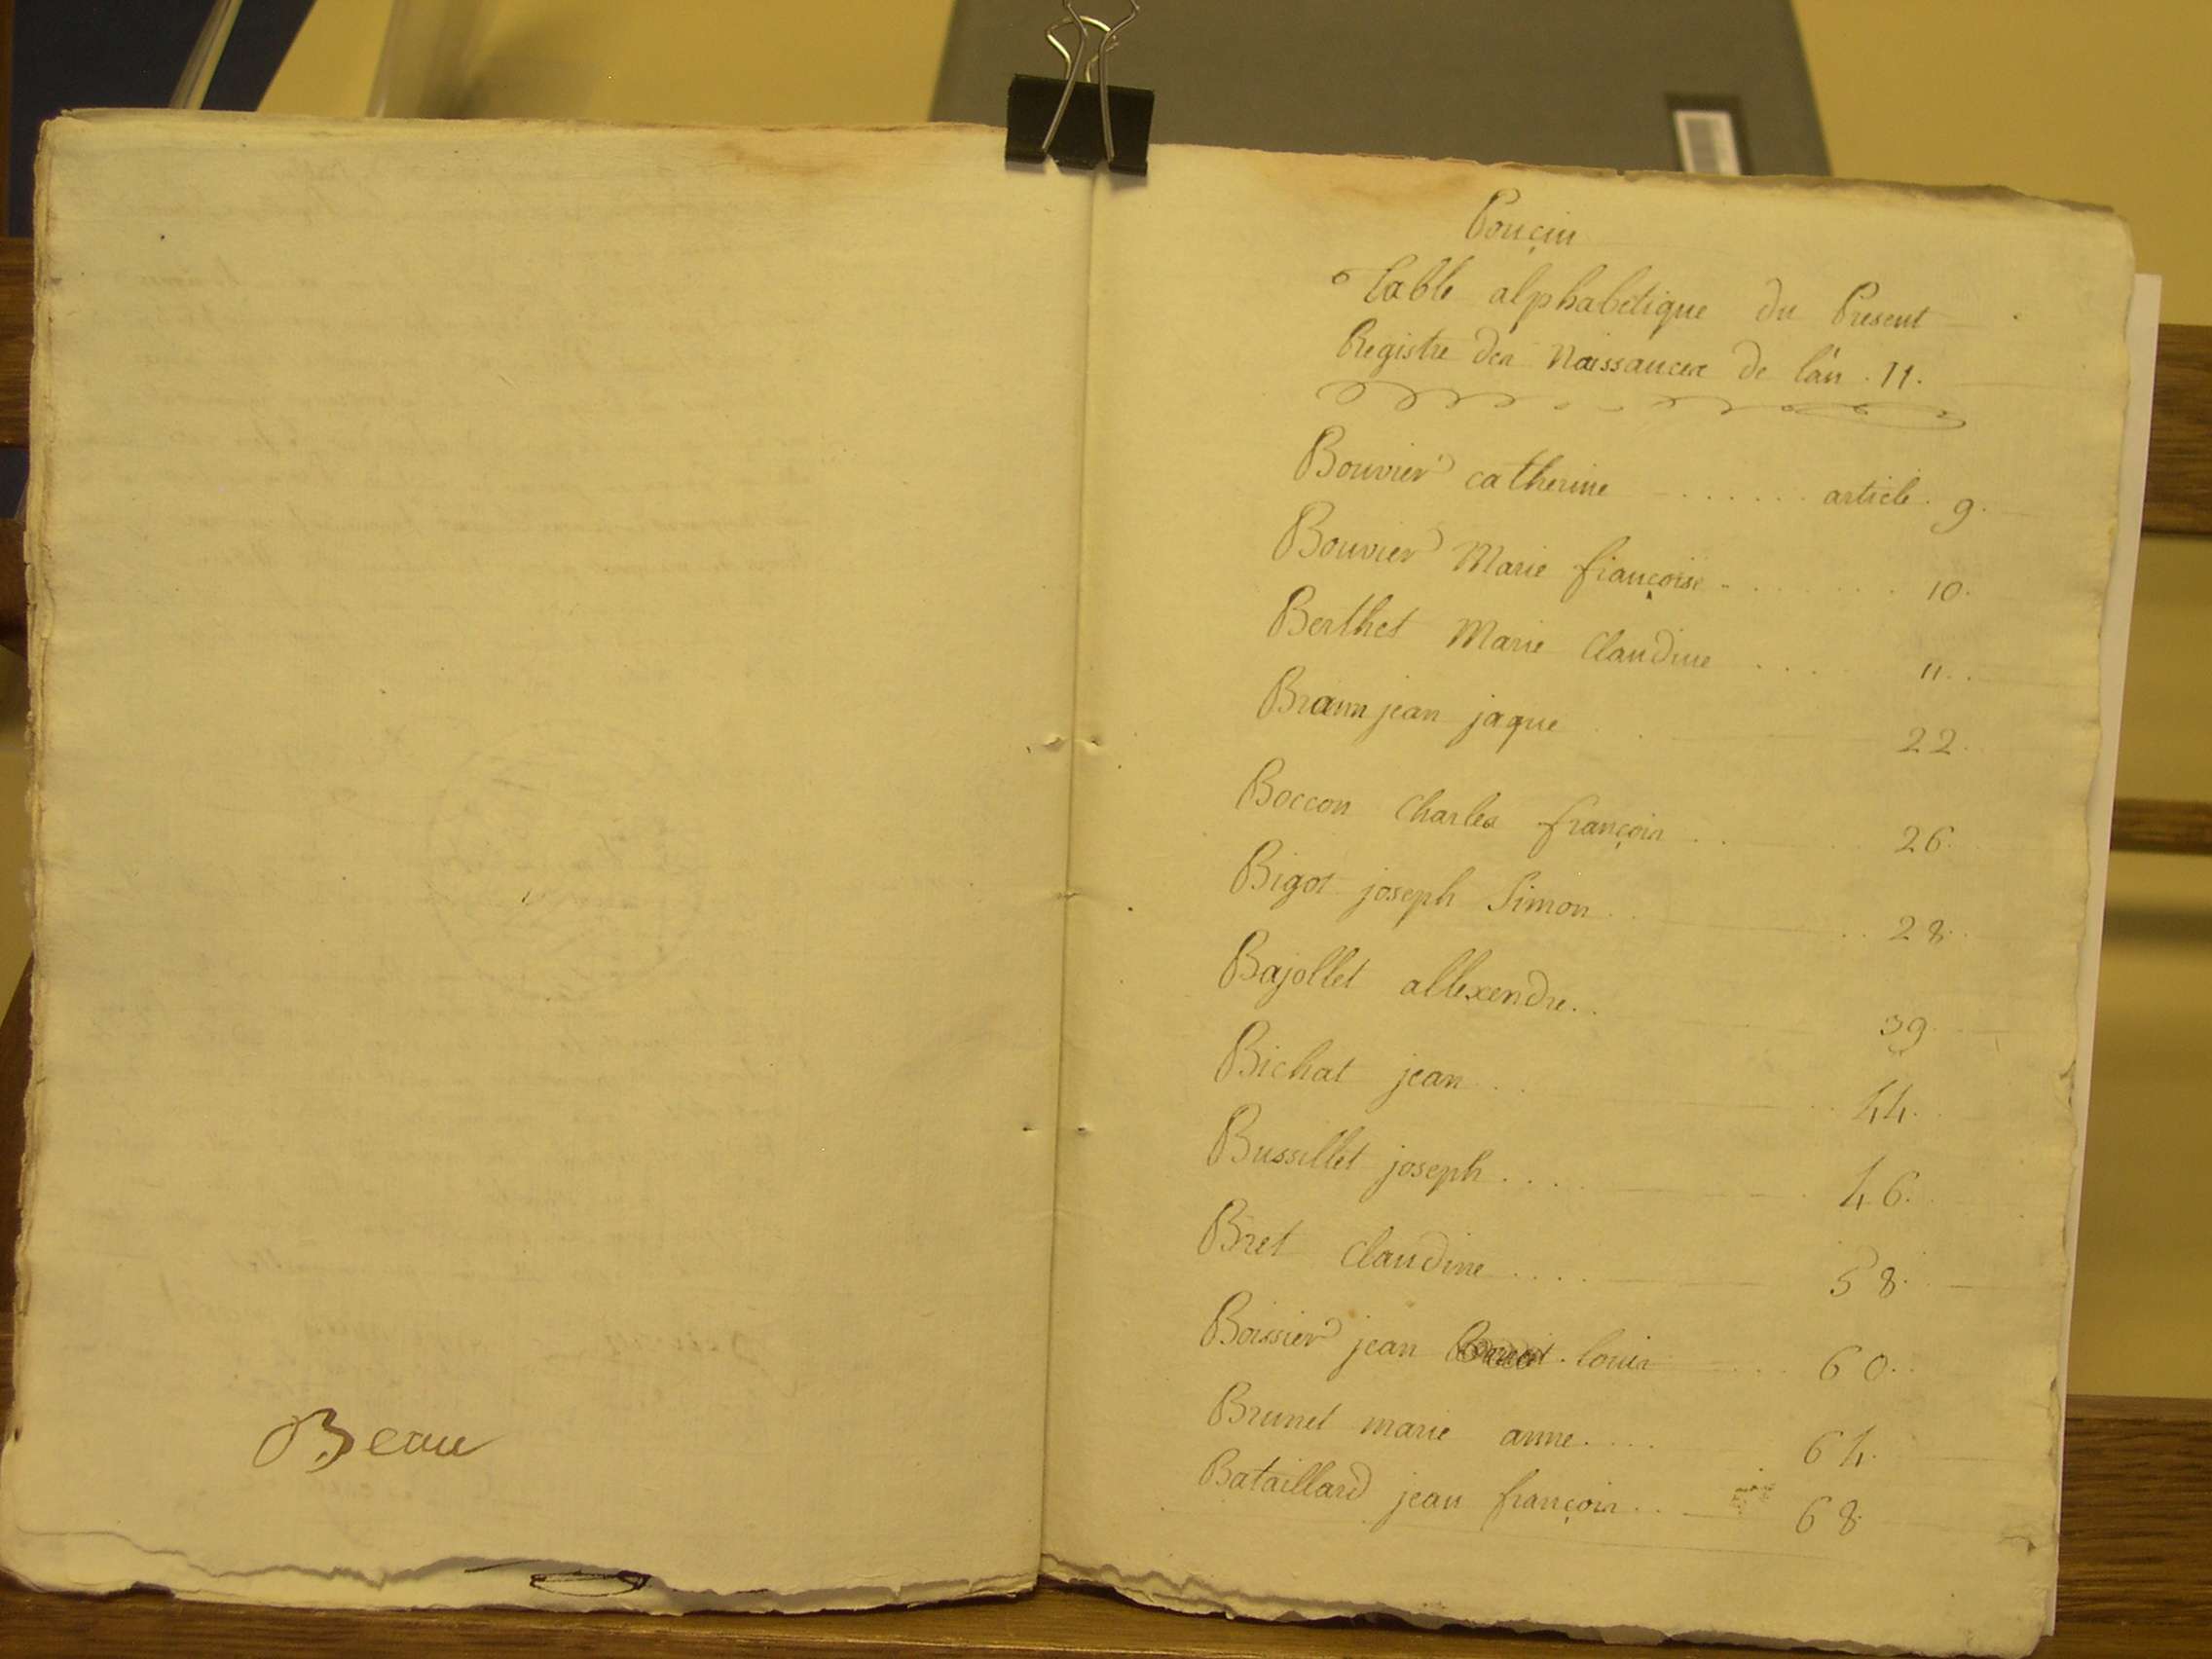 Beau
Ponçin
Table alphabétique du Présent
Registre des Naissances de l'an .11.
Bouvier catherine - ...... article. 9.
Bouvier Marie françoise - ....... 10.
Berthet Marie Claudine .... 11..
Braun jean jaque .. 22.
Boccon Charles françois .. 26.
Bigot joseph Simon .. 28.
Bajollet allexendre.. 39.
Bichat jean .. 44.
Bussillet joseph .... 46.
Bret Claudine .... 58.
Boissier jean louis .... 60..
Brunet marie anne..... 64.
Bataillard jean françois .. 68